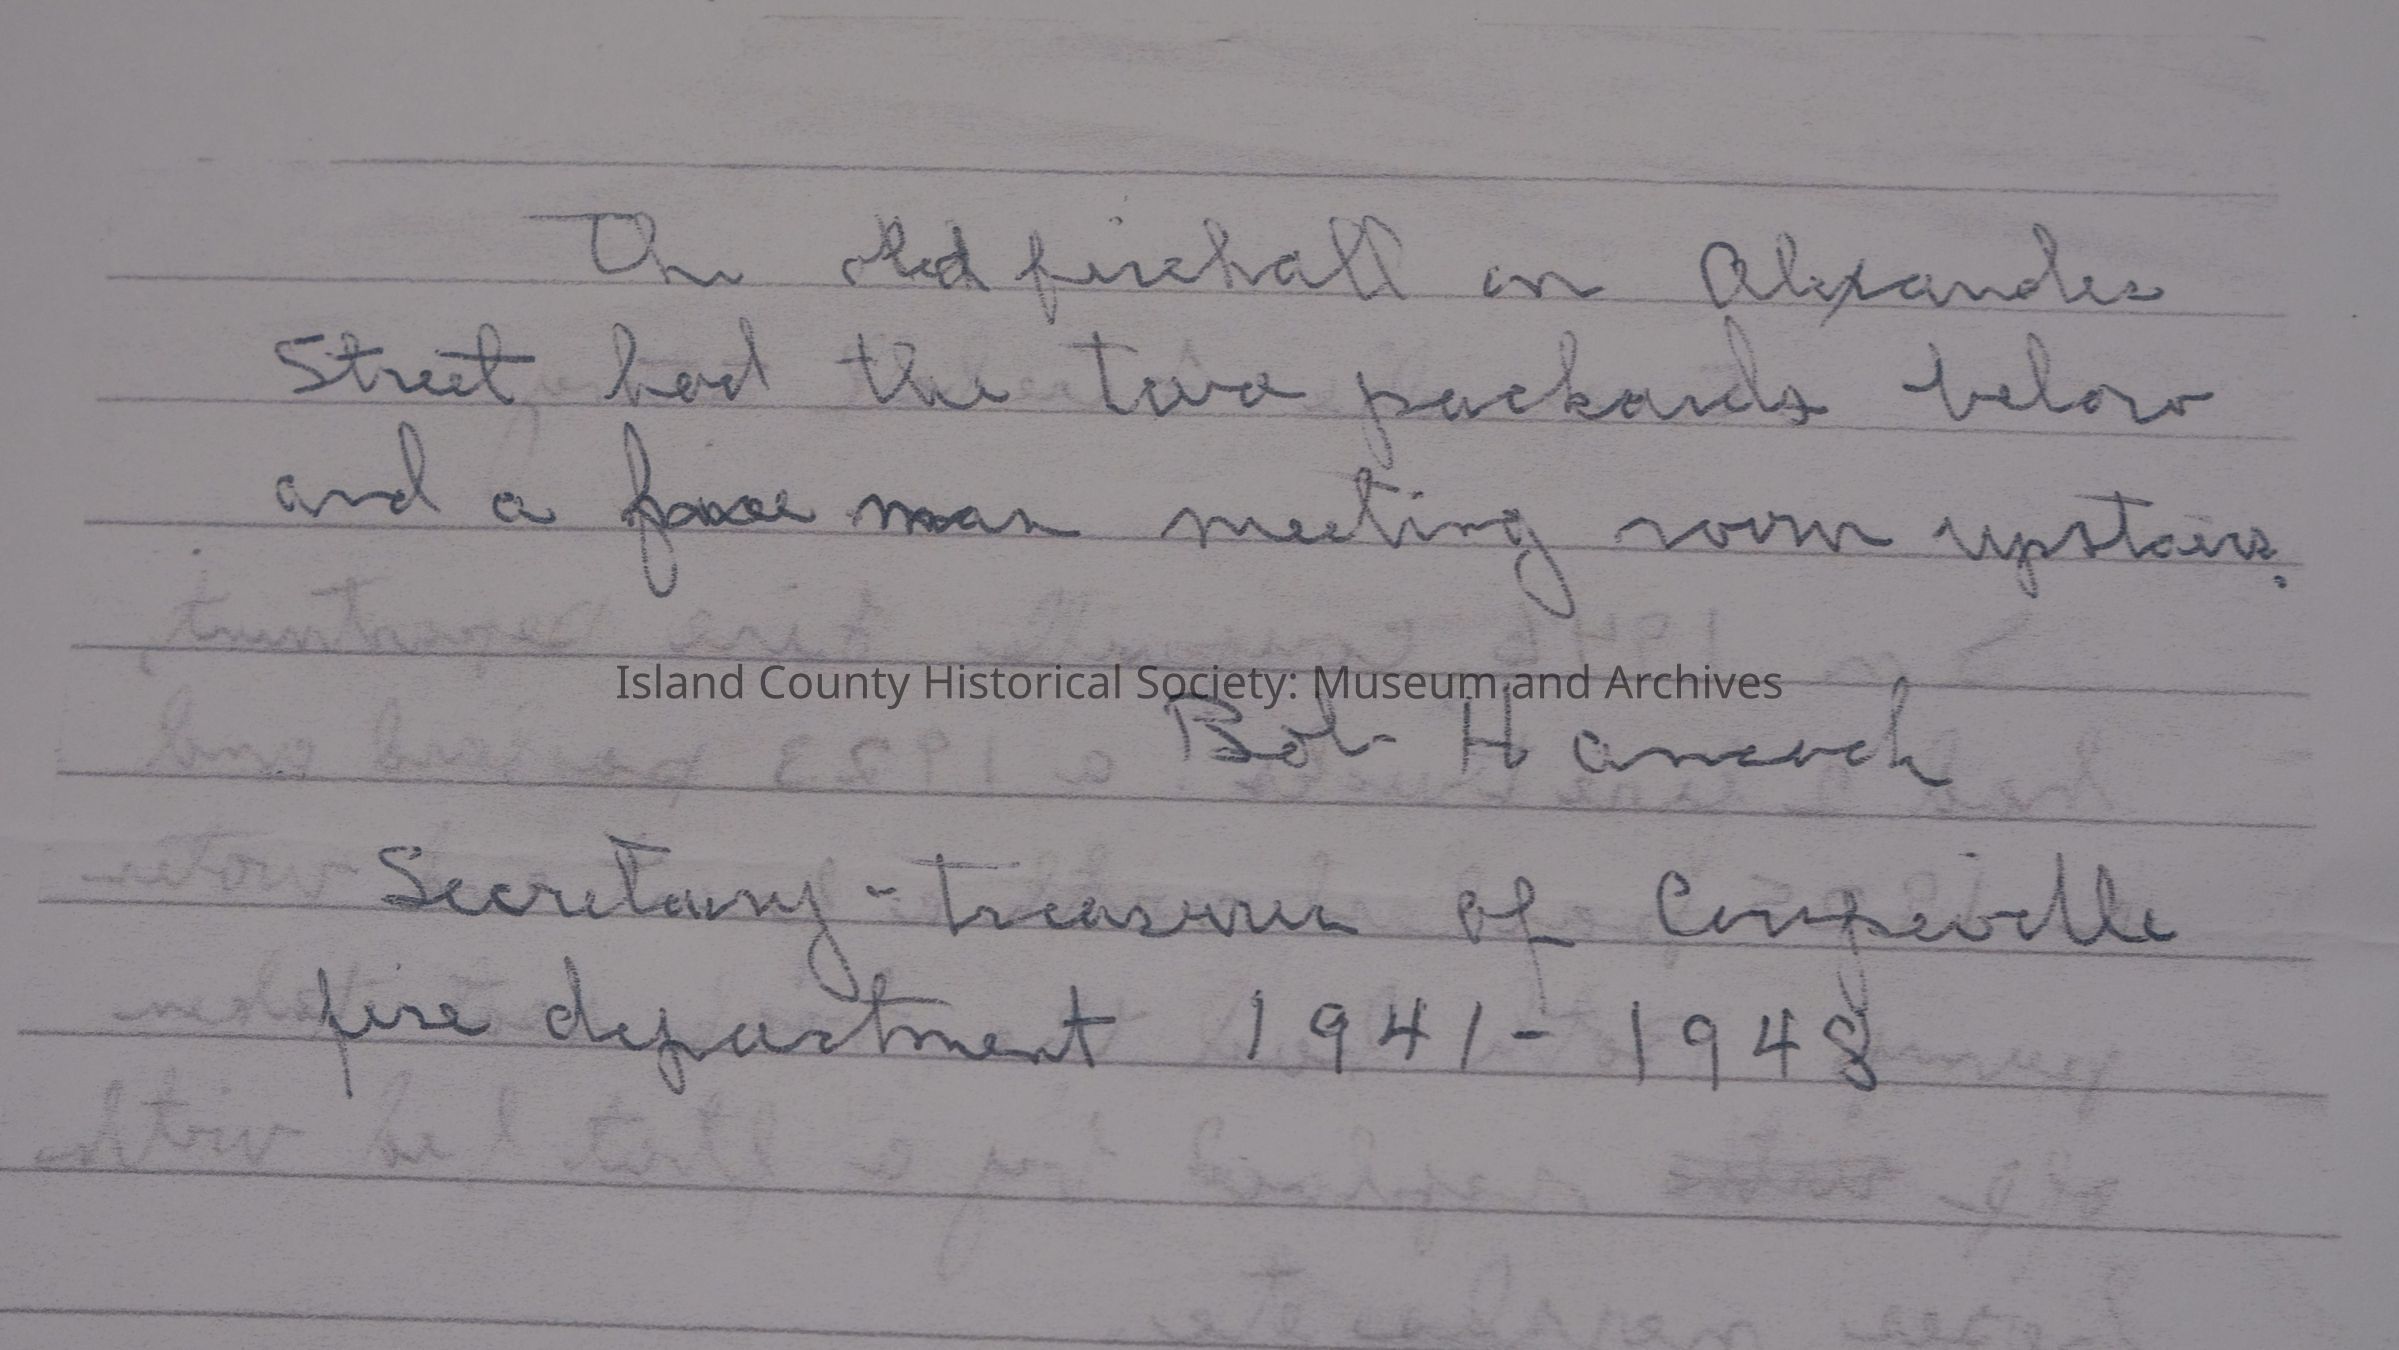 The old firehall on Alexander
Street had the two packards below
and a fire man meeting room upstairs.
Island County Historical Society: Museum and Archives
Bob Hancock
Secretary-treasurer of Coupeville
fire department 1941-1948